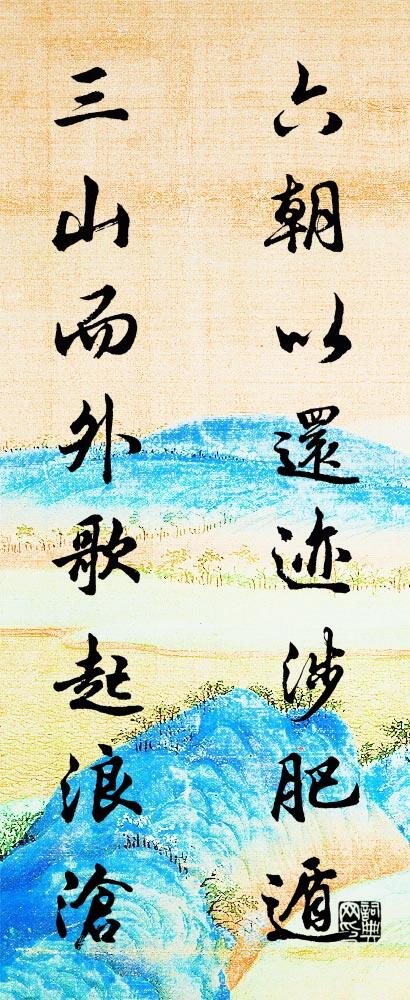 六朝以還迹涉肥遁
三山而外歌起浪滄
詞典
网